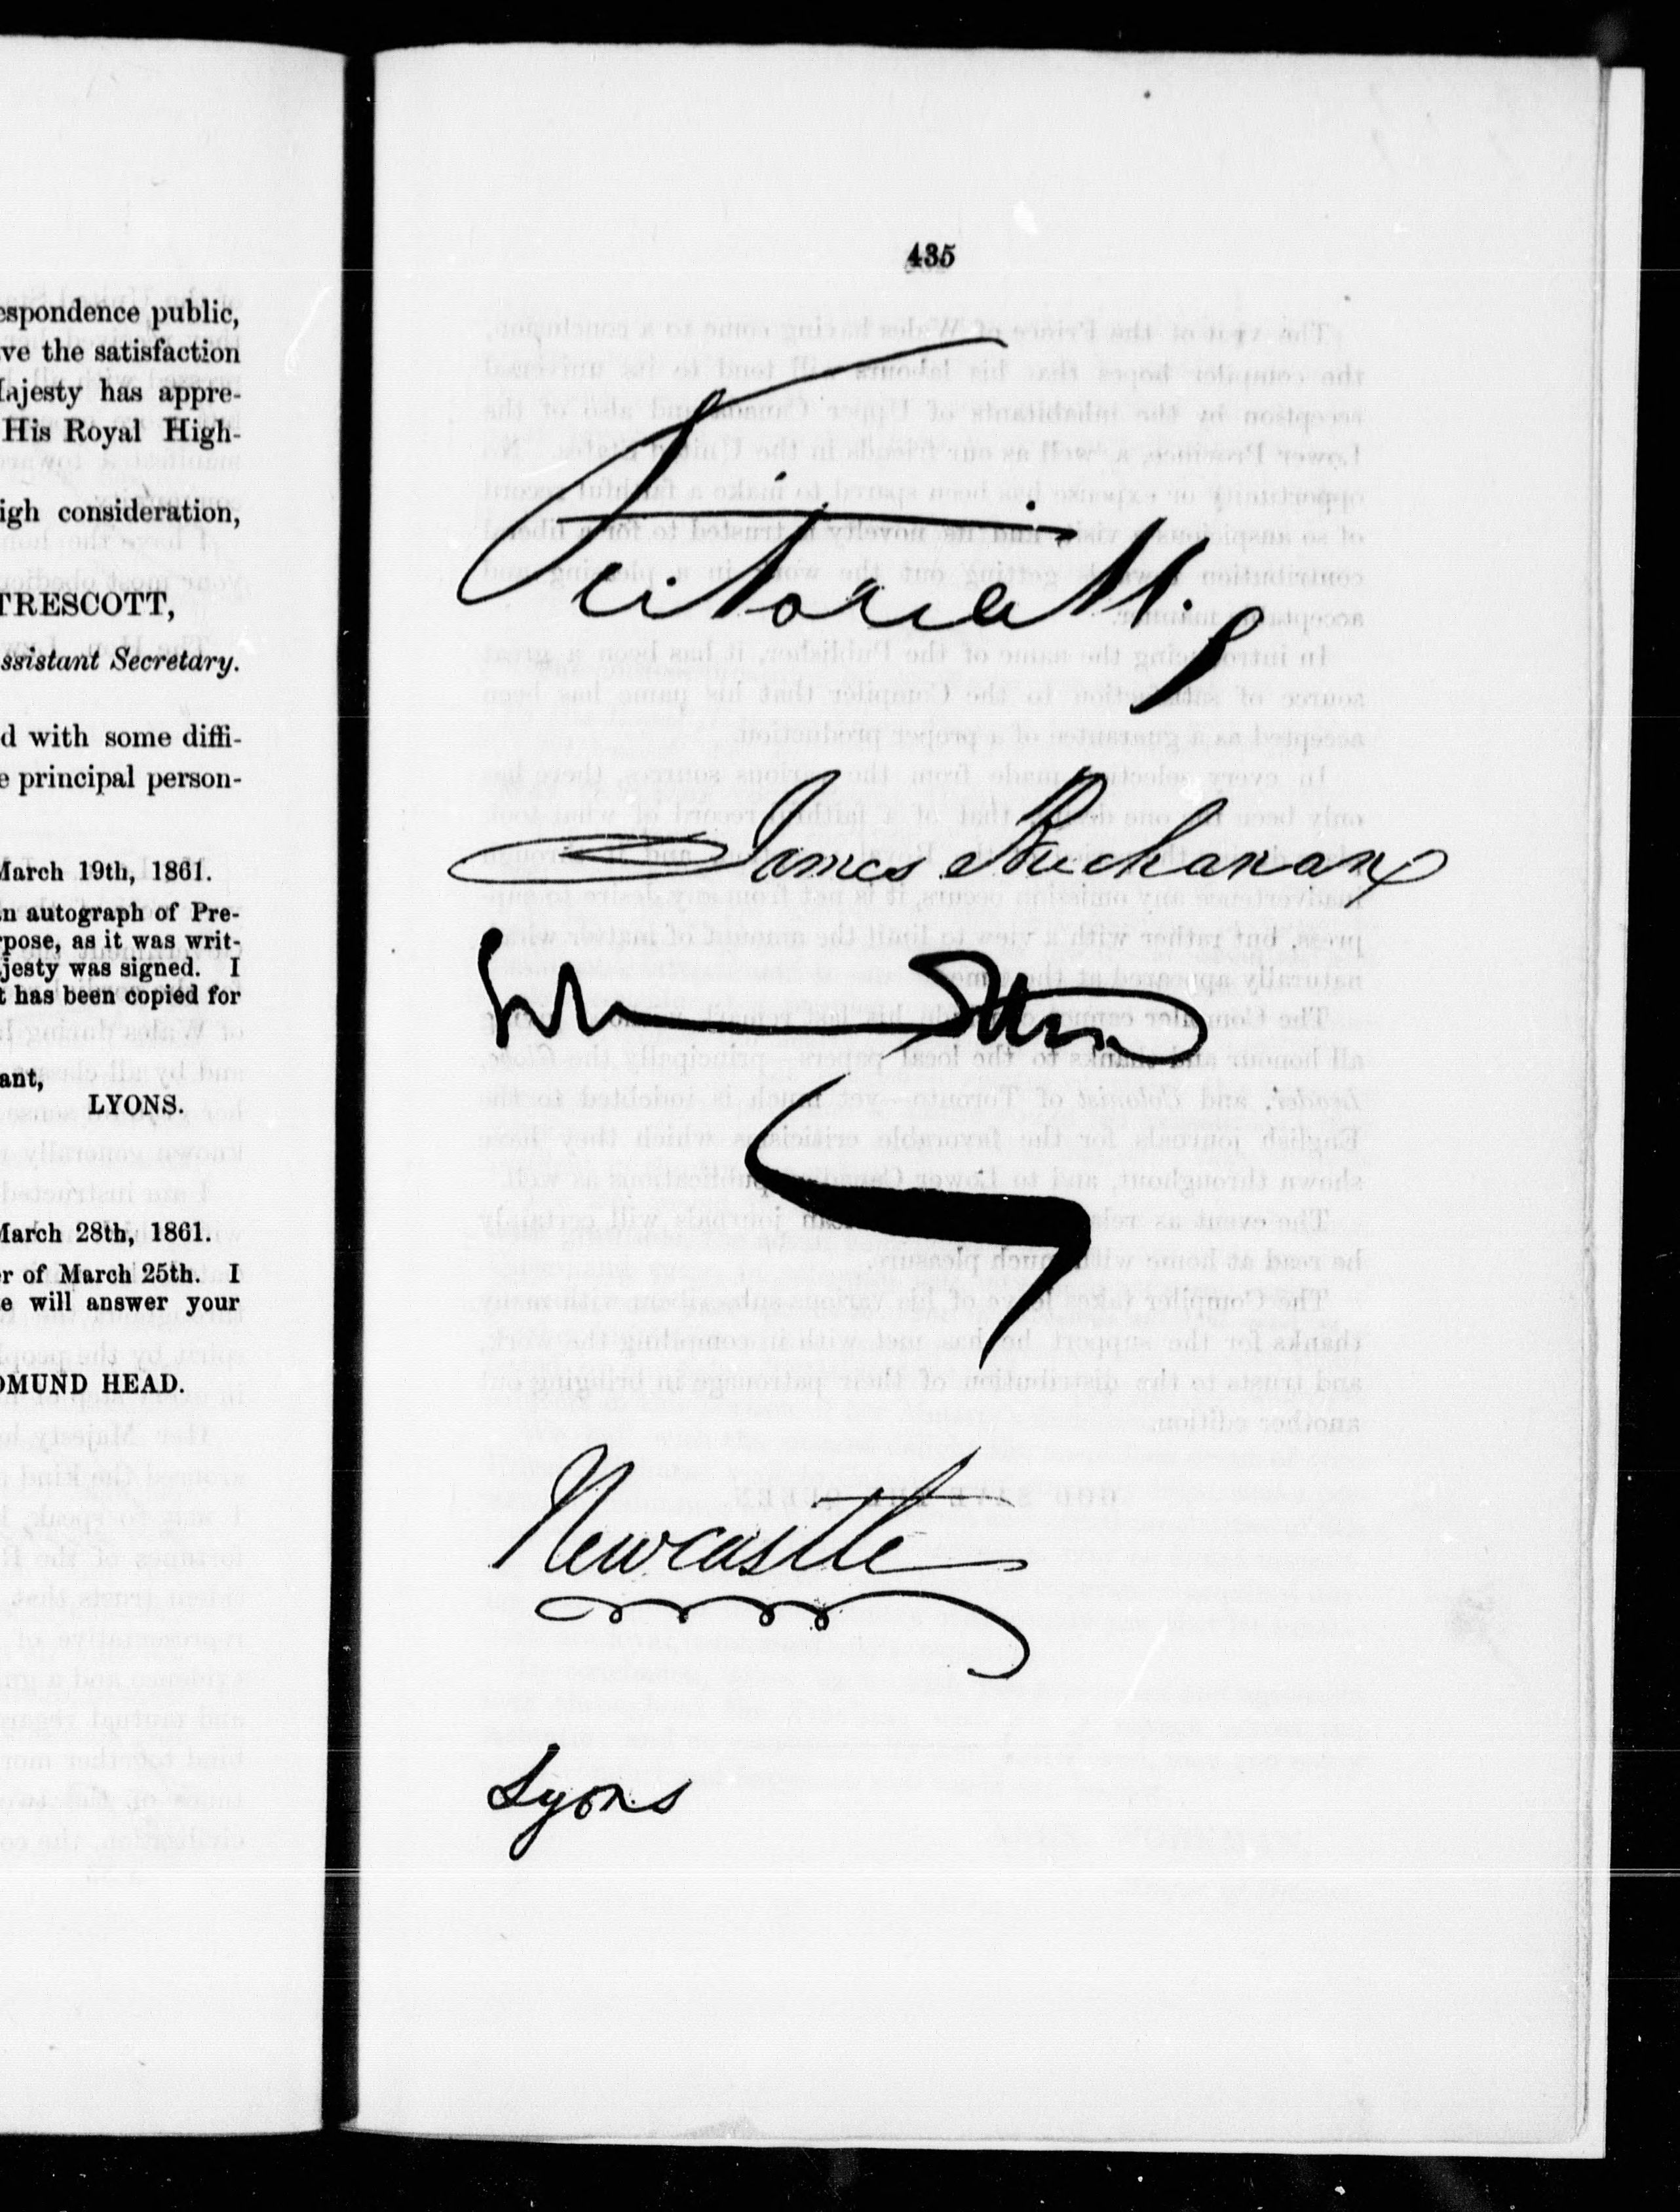 espondence public,
ve the satisfaction
ajesty has appre-
His Royal High-
igh consideration,
TRESCOTT,
ssistant Secretary.
d with some diffi-
e principal person-
March 19th, 1861.
n autograph of Pre-
pose, as it was writ-
jesty was signed. I
t has been copied for
ant,
LYONS.
March 28th, 1861.
er of March 25th. I
e will answer your
DMUND HEAD.
435
Victoria R.
James Buchanan
Newcastle
Lyons